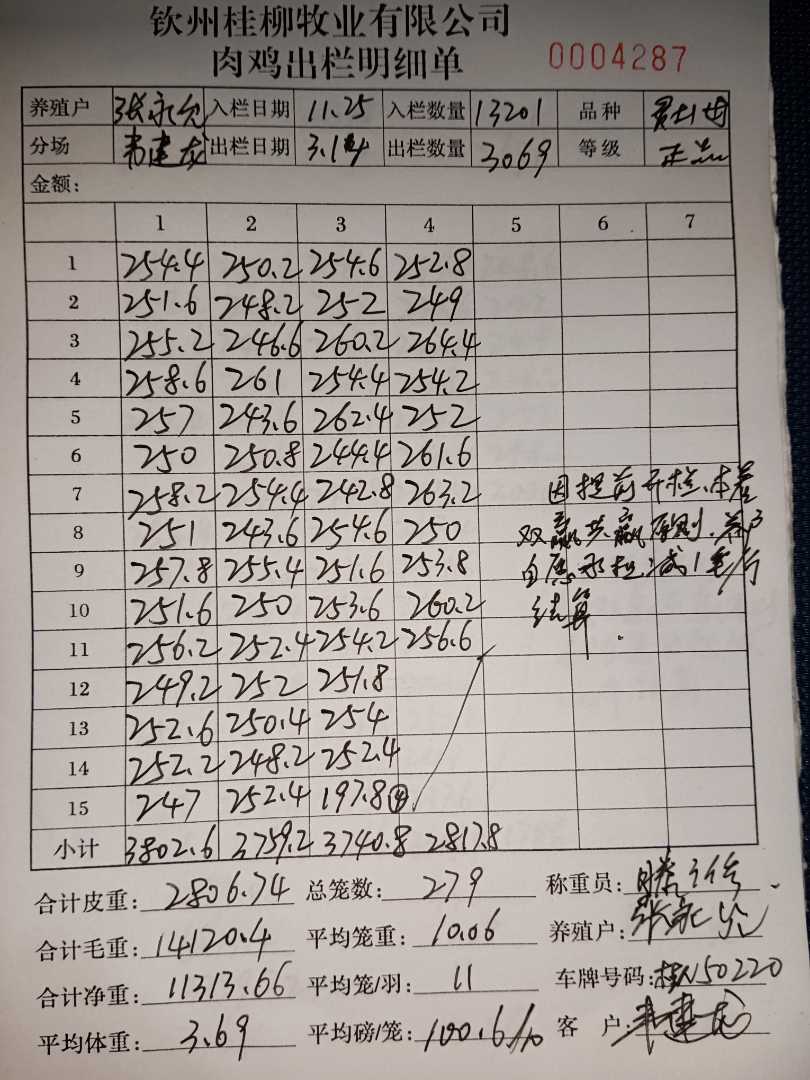 钦州桂柳牧业有限公司
肉鸡出栏明细单 0004287
养殖户 张永允 入栏日期 11.25 入栏数量 13201 品种
分场 韦建龙 出栏日期 3.14 出栏数量 3069 等级 正品
金额:
1 2 3 4 5 6 7
1 254.4 250.2 254.6 252.8
2 251.6 248.2 252 249
3 255.2 246.6 260.2 264.4
4 258.6 261 254.4 254.2
5 257 243.6 262.4 252
6 250 250.8 244.4 261.6
7 258.2 254.4 242.8 263.2 因提前开栏.本着
8 251 243.6 254.6 250 双赢共赢原则.养户
9 257.8 255.4 251.6 253.8 自愿 减1毛/斤
10 251.6 250 253.6 260.2 结算.
11 256.2 252.4 254.2 256.6
12 249.2 252 251.8
13 252.6 250.4 254
14 252.2 248.2 252.4
15 247 252.4 197.8 ④
小计 3802.6 3759.2 3740.8 2817.8
合计皮重: 2806.74 总笼数: 279 称重员:
合计毛重: 14120.4 平均笼重: 10.06 养殖户: 张永允
合计净重: 11313.66 平均笼/羽: 11 车牌号码: 桂N50220
平均体重: 3.69 平均磅/笼: 100.6/10 客 户: 韦建龙